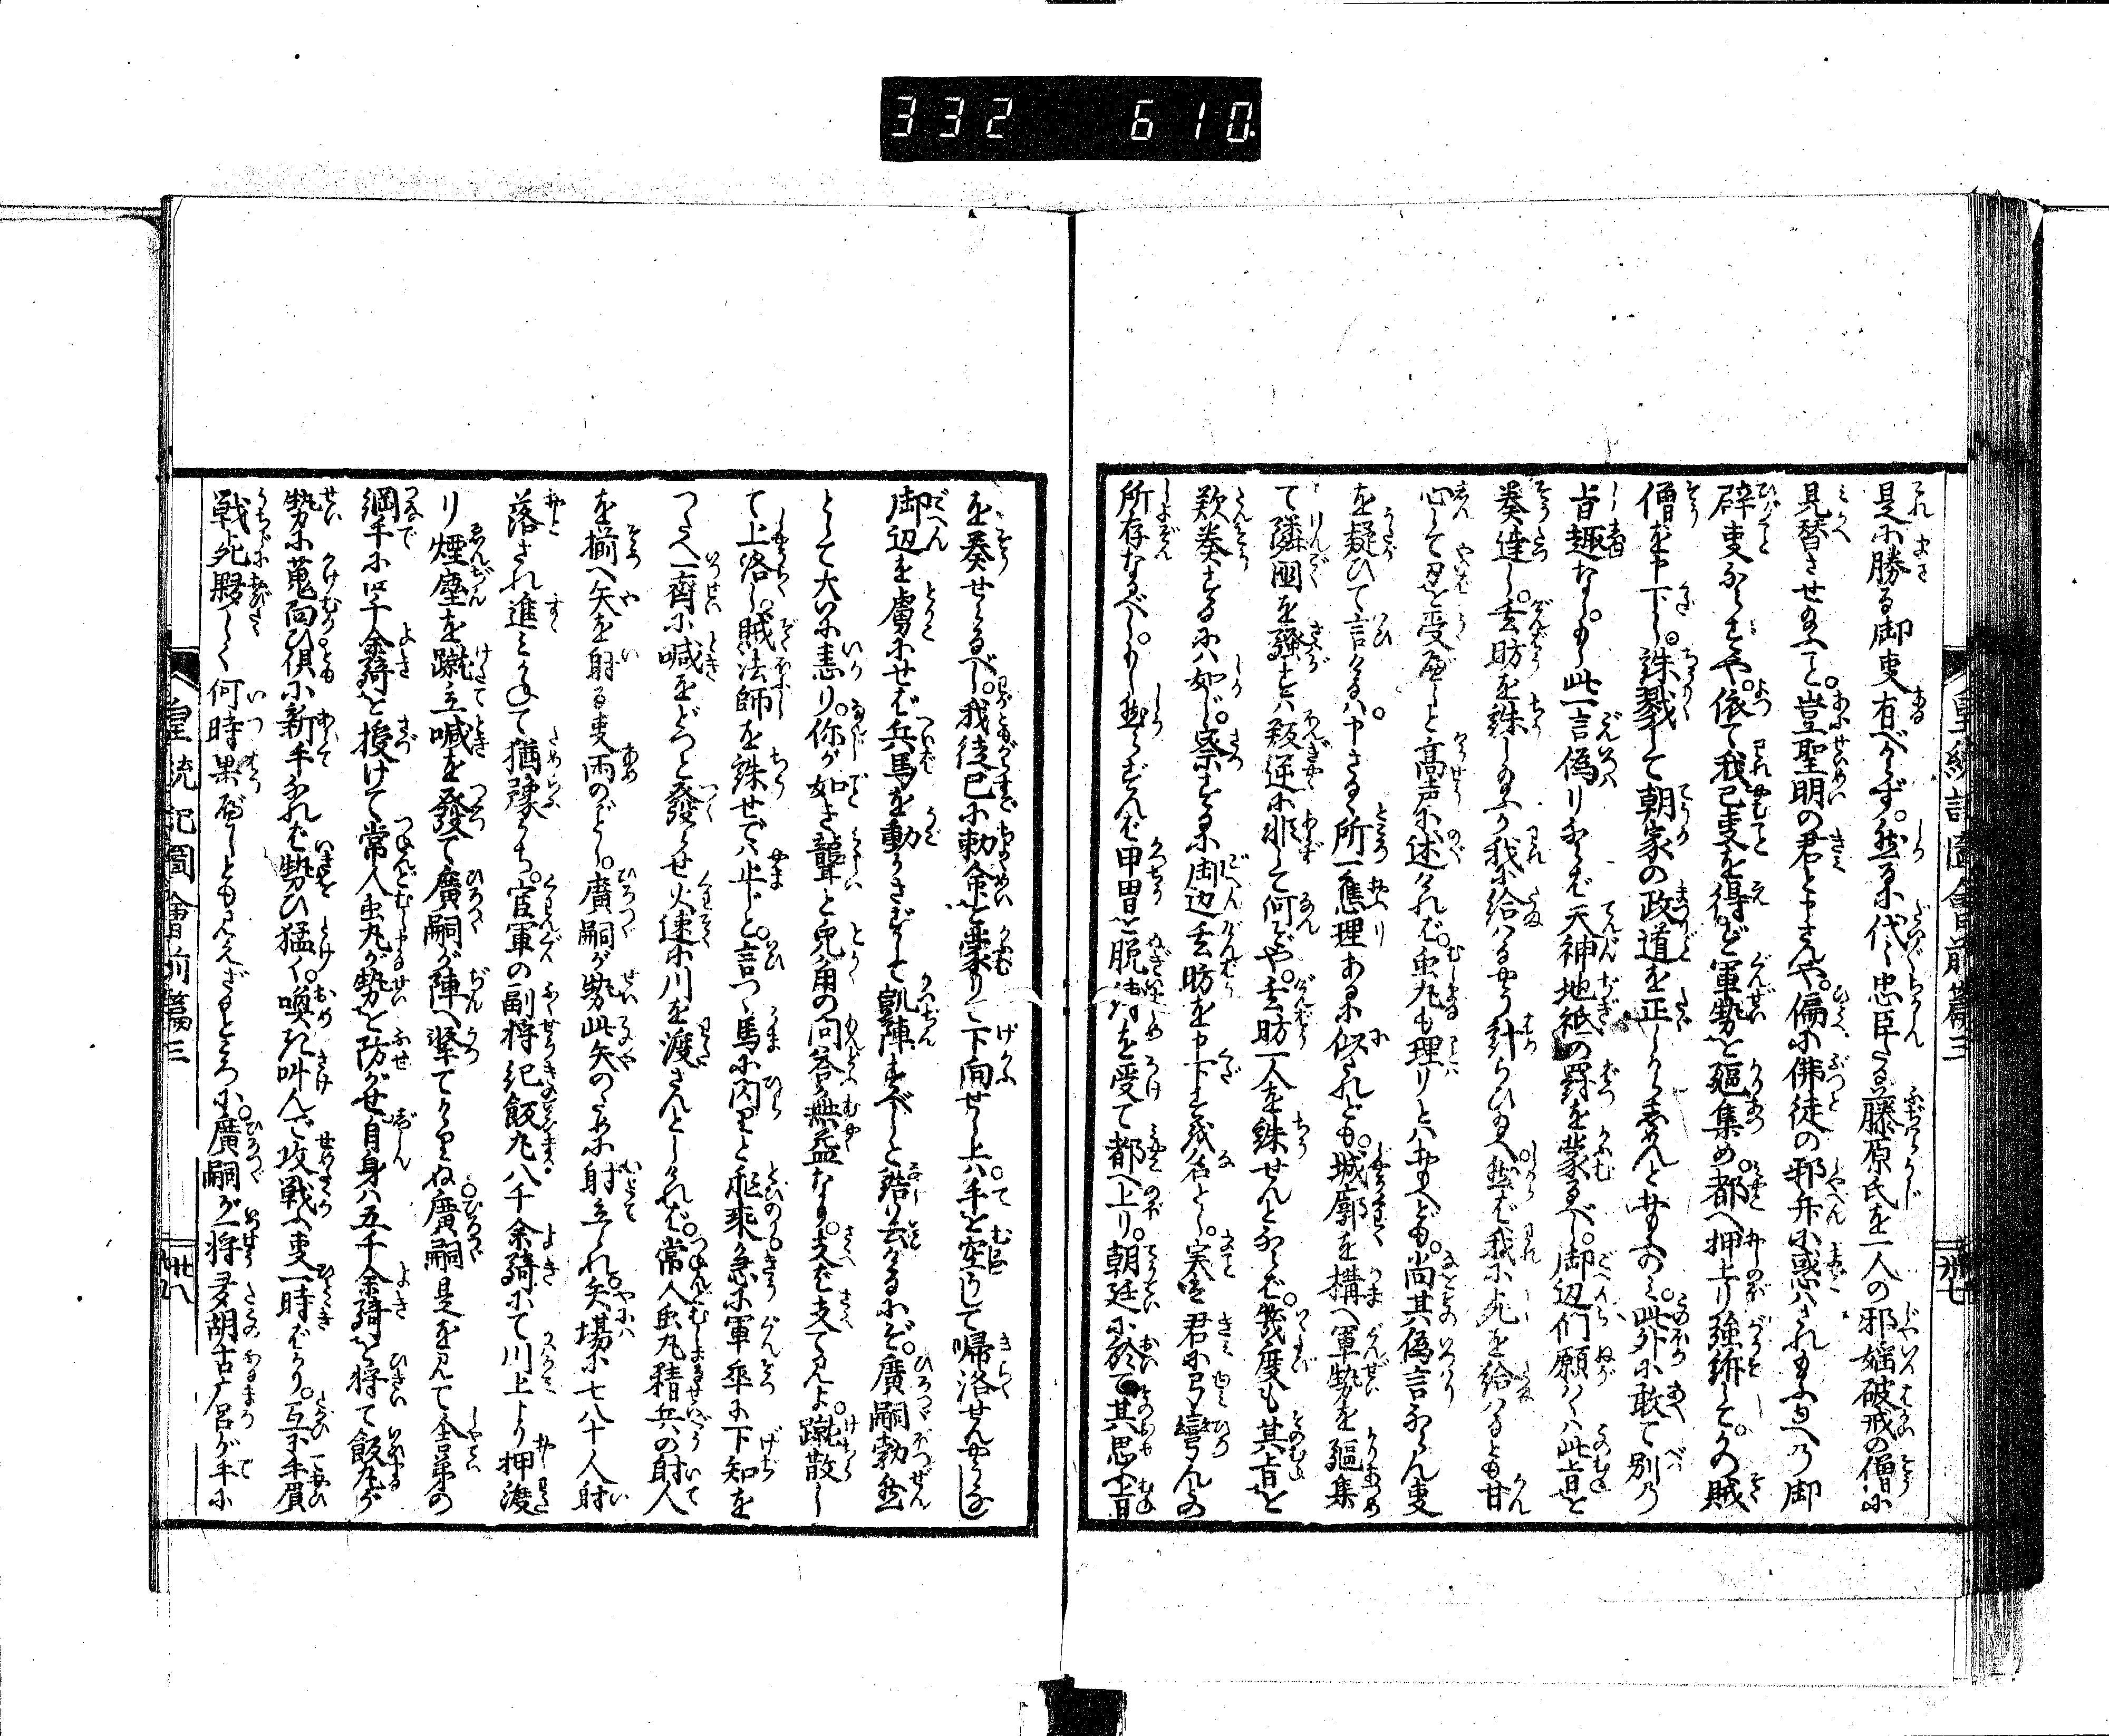 332 610
皇統記圖會前篇三 卅七
是に勝る御叓有べからず。然るに代〻忠臣たる藤原氏を一人の邪婬破戒の僧に
見替させ給ふこと。豈聖明の君と申さんや。偏に佛徒の邪弁に惑はされ給ふゆへの御
僻叓ならずや。依て我已叓を得ど軍勢を驅集め。都へ押上り強訴して。かの賊
僧を申下し。誅戮して朝家の政道を正しからしめんと欲のみ。此外に敢て別の
旨趣なし。もし此一言偽りあらば天神地祇の罸を蒙るべし。御辺們願くは此旨を
奏達し。玄昉を誅し給ふか我に給はるやう計らひ給へ。然らば我に死を給はるとも甘
心して刄を受べしと高声に述ければ。虫丸も理りとは思へども。尚其偽言ならん叓
を疑ひて言けるは。申さるゝ所一應理あるに似たれども。城廓を構へ軍勢を驅集
て隣国を騒すは叛逆に非して何ぞや。玄昉一人を誅せんとならば。幾度も其旨を
歎奏するには如じ。察するに御辺玄昉を申下すを名とし。実は君に弓彎んの
所存なるべし。もし然らずんば甲冑を脱 を受て都へ上り。朝廷に於て其思ふ旨
を奏せらるべし。我徒已に勅命を蒙りて下向せし上は。手を空しうして帰洛せんやうなし
御辺を虜にせずば兵馬を動かさずして凱陣すべしと 云けるにぞ。廣嗣勃然
として大いに恚り。你が如き聾と兎角の問答も無益なり。支ば支て見よ。蹴散し
て上洛し。賊法師を誅せでは止じと。言つゝ馬に閃りと飛乘。急に軍卒に下知を
つたへ一齊に喊をどつと發らせ火速に川を渡さんとしければ。常人虫丸精兵の射人
を揃へ矢を射る叓雨のごとし。廣嗣が勢此矢のために射立られ。矢場に七八十人射
落され進みかねて猶豫うち。官軍の副将紀飯丸八千余騎にて川上より押渡
り煙塵を蹴立喊を發て廣嗣が陣へ撃てかゝりぬ。廣嗣是を見て舎弟の
綱手に四千余騎を授けて常人虫丸が勢を防がせ自身は五千余騎を将て飯丸が
勢に蒐向ひ倶に新手なれば勢ひ猛く。喚き叫んで攻戦ふ叓一時ばかり。互に手負
戦死夥しく何時果べしとも見えざるところに。廣嗣が一将多胡古广呂が手に
皇統記圖會前篇三 卅八